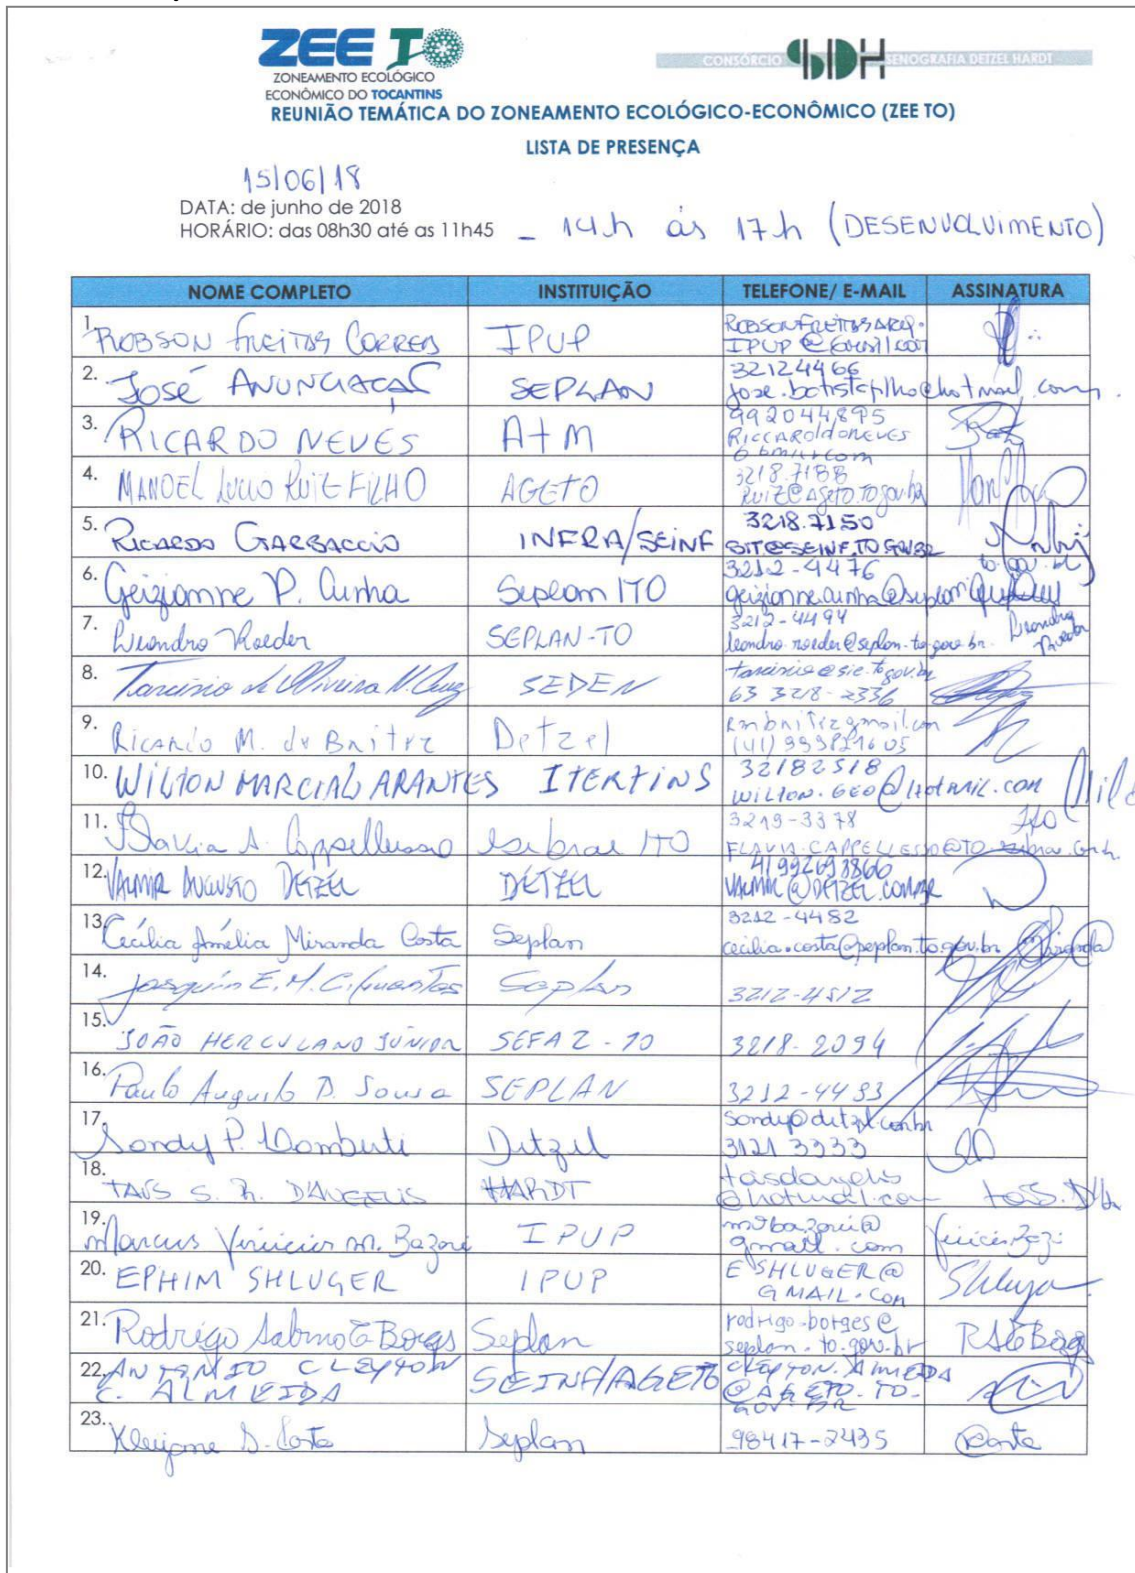 ZEE TO
ZONEAMENTO ECOLÓGICO
ECONÔMICO DO TOCANTINS
CONSÓRCIO SDH SENOGRAFIA DETZEL HARDT
REUNIÃO TEMÁTICA DO ZONEAMENTO ECOLÓGICO-ECONÔMICO (ZEE TO)
LISTA DE PRESENÇA
15/06/18
DATA: de junho de 2018
HORÁRIO: das 08h30 até as 11h45 - 14h às 17h (DESENVOLVIMENTO)
NOME COMPLETO INSTITUIÇÃO TELEFONE/ E-MAIL ASSINATURA
1. ROBSON FREITAS CORREA IPUP
2. JOSÉ ANUNCIAÇÃO SEPLAN 32124466
jose.batistafilho@hotmail.com
3. RICARDO NEVES ATM 992044895
4. MANOEL LUCIO RUIZ FILHO AGETO 3218.7188
RUIZ@AGETO.TO.gov.br
5. RICARDO GARBACCIO INFRA/SEINF 3218.7150
6. Geizianne P. Cunha Seplan/TO 3212-4476
geizianne.cunha@seplan.to.gov.br
7. Leandro Roeder SEPLAN-TO 3212-4494
leandro.roeder@seplan.to.gov.br Leandro Roeder
8. Tarcisio de Oliveira SEDEN
63 3218-2336
9. Ricardo M. de Britez Detzel
10. WILTON MARCIAL ARANTES ITERTINS 32182518
WILTON.GEO@HOTMAIL.COM
11. Flavia A. Cappellesso Sebrae/TO 3219-3378
12. VALMIR AUGUSTO DETZEL DETZEL 41992693866
VALMIR@DETZEL.COM.BR
13. Cecília Amélia Miranda Costa Seplan 3212-4482
cecilia.costa@seplan.to.gov.br
14. Joaquín E. M. Cifuentes Seplan 3212-4512
15. JOÃO HERCULANO JÚNIOR SEFAZ-TO 3218-2094
16. Paulo Augusto B. Sousa SEPLAN 3212-4493
17. Sondy P. Detzel
3121 3333
18. TAÍS S. R. D'ANGELIS HARDT taisdangelis
@hotmail.com
19. Marcus Vinicius M. Bazoni IPUP mvbazoni@
gmail.com
20. EPHIM SHLUGER IPUP ESHLUGER@
GMAIL.COM
21. Rodrigo Sabino T. Borges Seplan rodrigo.borges@
seplan.to.gov.br
22. ANTONIO CLEYTON SEINF/AGETO CLEYTON.ALMEIDA
C. ALMEIDA @AGETO.TO.
GOV.BR
23. Kleijane S. Costa Seplan 98417-2435